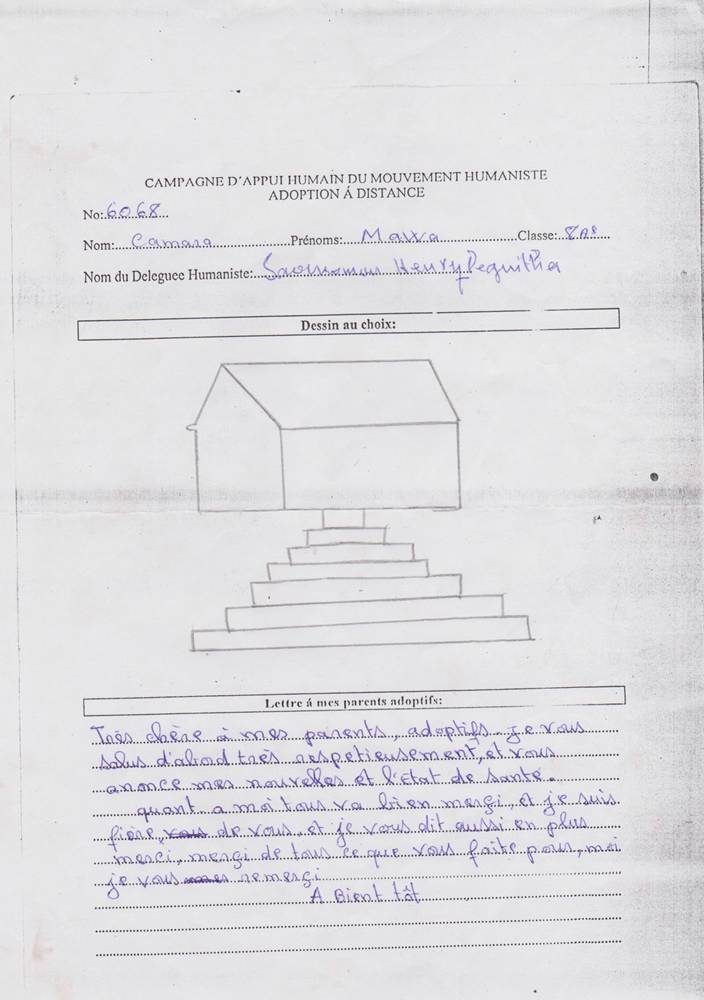 CAMPAGNE D'APPUI HUMAIN DU MOUVEMENT HUMANISTE
ADOPTION Á DISTANCE
No: 6068
Nom: Camara Prénoms: Mawa Classe: 8A8
Nom du Deleguee Humaniste: Henry
Dessin au choix:
Lettre á mes parents adoptifs:
Très chère à mes parents, adoptifs. je vous
salus d'abord très respetieusement, et vous
anonce mes nouvelles et l'état de santé.
quant a moi tous va bien mergi, et je suis
fière, vous de vous, et je vous dit aussi en plus
merci, mergi de tous ce que vous faite pour, moi
je vous remergi
A Bient tôt